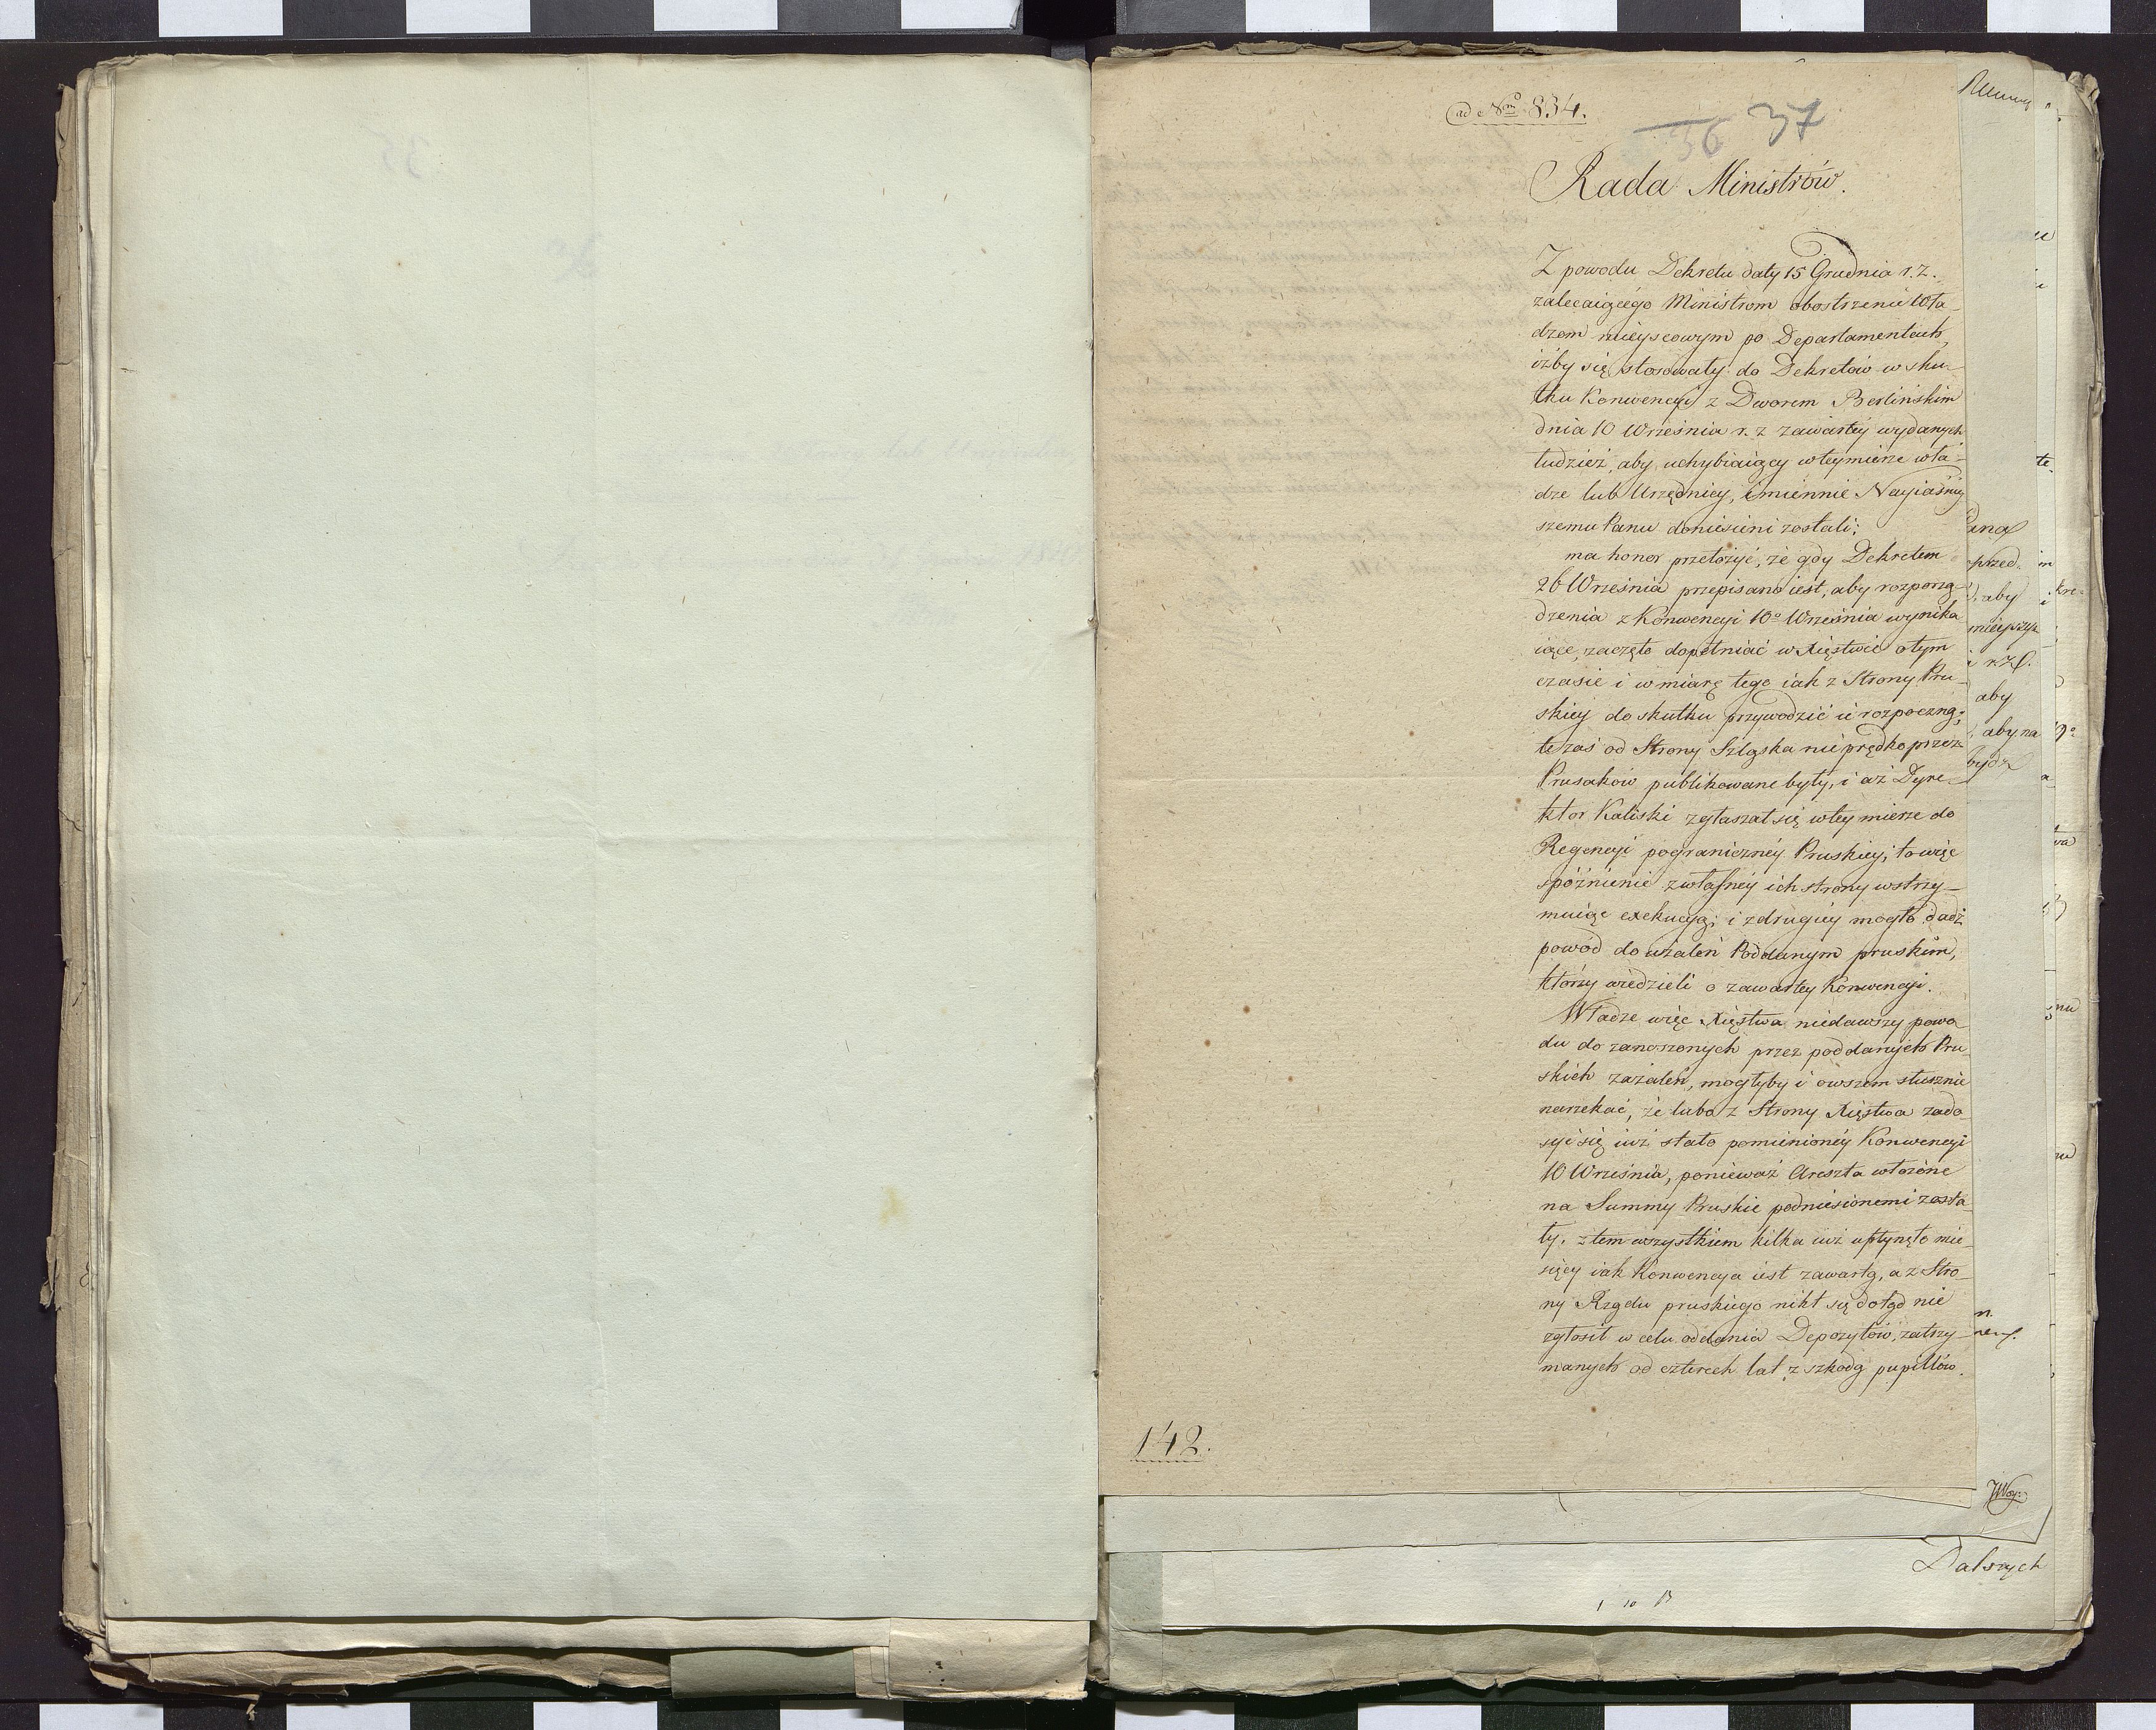 ad Nm 834.
36 37
Rada Ministrów.
Z powodu Dekretu daty 15 Grudnia r. z.
zalecaiącégo Ministrom obostrzenie Wła-
dzom mieyscowym po Departamentach,
iżby się stosowały do Dekretów w sku-
tku Konwencyi z Dworem Berlińskim
dnia 10 Września r. z zawartéy wydanych
tudzież, aby uchybiaiący w tey mierze wła-
dze lub Urzędnicy, imiennie Nayiaśniey
szemu Panu doniesieni zostali;
ma honor przełożyć, że gdy Dekretem
26 Września przepisano iest, aby rozporzą-
dzenia z Konwencyi 10o Września wynika
iące, zaczęto dopełniać w Xięstwie o tym
czasie i w miarę tego iak z Strony Pru-
skiey do skutku przywodzić ie rozpoczną;
te zaś od Strony Szląska nie prędko przez
Prusaków publikowane były, i aż Dyre-
ktor Kaliski zgłaszał się w tey mierze do
Regencyi pogranicznéy Pruskiey; to więc
spóźnienie z własnéy ich strony wstrzy-
muiąc exekucyą i z drugiéy mogło dadź
powód do użaleń Poddanym pruskim,
którzy wiedzieli o zawartey Konwencyi.
Władze więc Xięstwa niedawszy powo-
du do zanoszonych przez poddanych Pru-
skich zażaleń, mogłyby i owszem słusznie
narzekać, że lubo z Strony Xięstwa zado-
syć się iuż stało pomienionéy Konwencyi
10 Września, ponieważ Areszta włożone
na Summy Pruskie podniesionemi zosta-
ły. z tem wszystkiem kilka iuż upłynęło mie-
sięcy iak Konwencya iest zawartą, a z Stro-
ny Rządu pruskiego nikt się dotąd nie
zgłosił w celu oddania Depozytów, zatrzy-
manych od czterech lat z szkodą pupillów.
142.
przed-
aby
aby
aby na
Dalszych